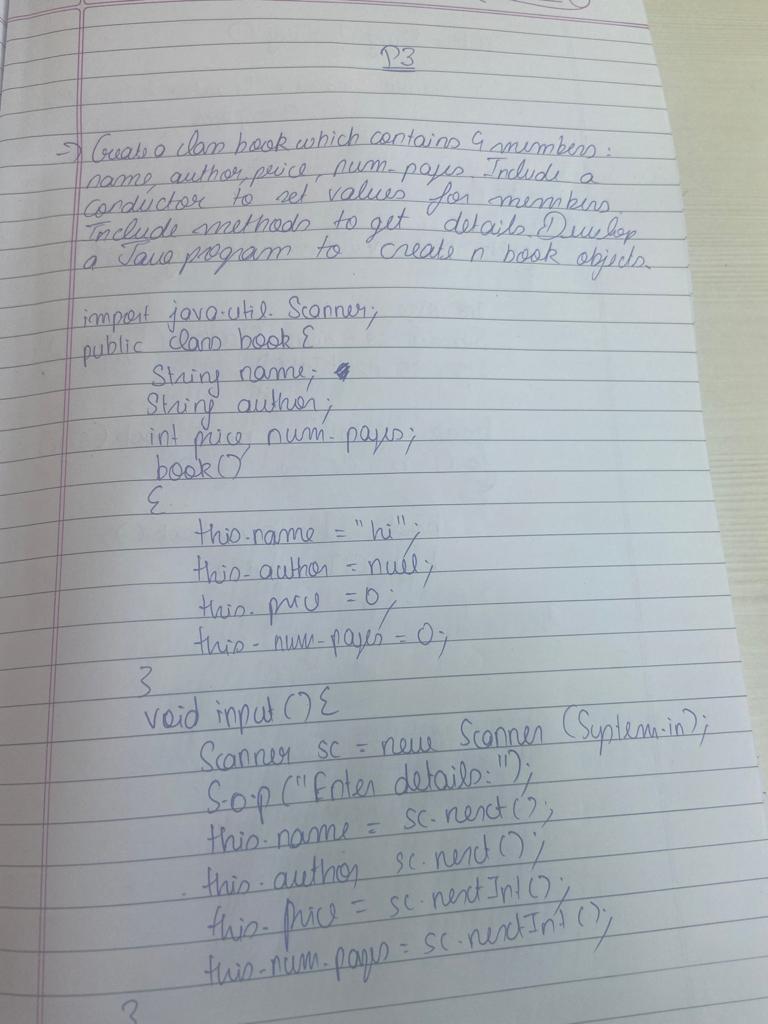 P3
=> Create a class book which contains 4 members:
name, author, price, num_pages. Include a
conductor to set values for members.
Include methods to get details. Develop
a Java program to create n book objects.
import java.util.Scanner;
public class book {
String name;
String author;
int price, num_pages;
book()
{
this.name = "hi";
this.author = null;
this.price = 0;
this.num_pages = 0;
}
void input() {
Scanner sc = new Scanner (System.in);
S.o.p("Enter details:");
this.name = sc.next();
this.author sc.next();
this.price = sc.nextInt();
this.num_pages = sc.nextInt();
}